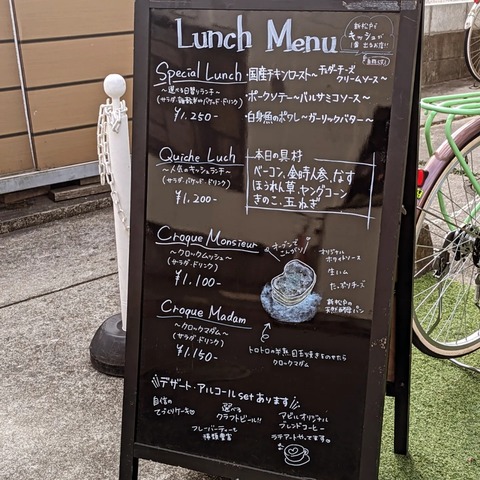 Lunch Menu
新松戸で
キッシュが
1番 出るお店!!
Special Lunch
・国産チキンロースト〜 チェダーチーズ
クリームソース〜
〜選べる日替りランチ〜
・ポークソテー〜バルサミコソース〜
¥1.250-
・白身魚のポワレ〜ガーリックバター〜
Quiche Luch
〜人気のキッシュランチ〜
(サラダ・バケット・ドリンク)
¥1.200-
本日の具材
ベーコン、金時人参、なす
ほうれん草、ヤングコーン
きのこ、玉ねぎ
Croque Monsieur
〜クロックムッシュ〜
(サラダ・ドリンク)
¥1.100-
オーブンで
こんがり
オリジナル
ホワイトソース
生ハム
たっぷりチーズ
新松戸の
天然酵母パン
Croque Madam
〜クロックマダム〜
(サラダ・ドリンク)
¥1.150-
トロトロの半熟目玉焼きをのせたら
クロックマダム
デザート・アルコール set あります
自信の
てづくりケーキ
選べる
クラフトビール!!
フレーバーティーも
種類豊富
アピルオリジナル
ブレンドコーヒー
ラテアートやってます